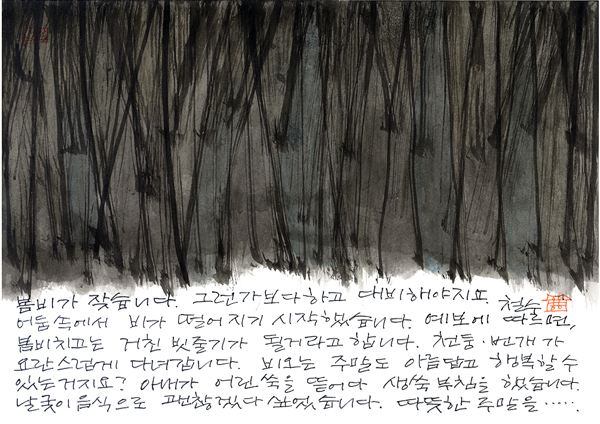 봄비가 잦습니다. 그런가보다하고 대비해야지요. 철수
어둠속에서 비가 떨어지기 시작했습니다. 예보에 따르면,
봄비치고는 거친 빗줄기가 될거라고 합니다. 천둥·번개가
요란스럽게 다녀갑니다. 비오는 주말도 아름답고 행복할 수
있는거지요? 아내가 어린 쑥을 뜯어다 생쑥 부침을 했습니다.
날궂이 음식으로 괜찮겠다 싶었습니다. 따뜻한 주말을·····.